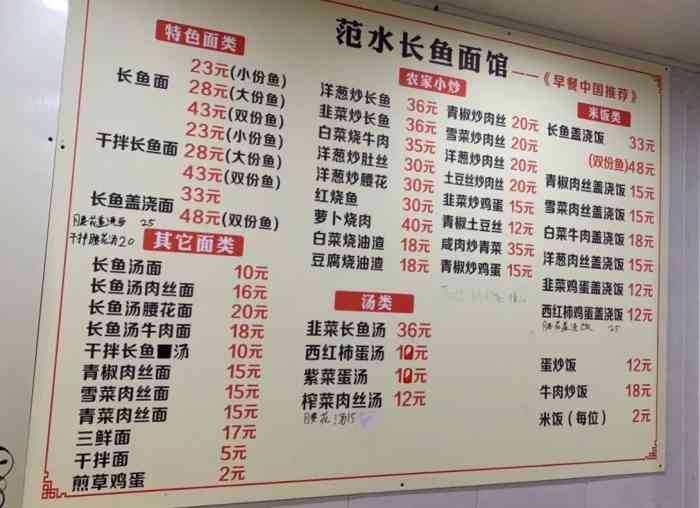 范水长鱼面馆——《早餐中国推荐》
特色面类
长鱼面 23元(小份鱼)
28元(大份鱼)
43元(双份鱼)
干拌长鱼面 23元(小份鱼)
28元(大份鱼)
43元(双份鱼)
长鱼盖浇面 33元
48元(双份鱼)
腰花盖浇面 25
干拌腰花汤20
其它面类
长鱼汤面 10元
长鱼汤肉丝面 16元
长鱼汤腰花面 20元
长鱼汤牛肉面 18元
干拌长鱼 汤 10元
青椒肉丝面 15元
雪菜肉丝面 15元
青菜肉丝面 15元
三鲜面 17元
干拌面 5元
煎草鸡蛋 2元
农家小炒
洋葱炒长鱼 36元
韭菜炒长鱼 36元
白菜烧牛肉 35元
洋葱炒肚丝 30元
洋葱炒腰花 30元
红烧鱼 30元
萝卜烧肉 40元
白菜烧油渣 18元
豆腐烧油渣 18元
青椒炒肉丝 20元
雪菜炒肉丝 20元
洋葱炒肉丝 20元
土豆丝炒肉丝 20元
韭菜炒鸡蛋 15元
青椒土豆丝 12元
咸肉炒青菜 35元
青椒炒鸡蛋 15元
汤类
韭菜长鱼汤 36元
西红柿蛋汤 10元
紫菜蛋汤 10元
榨菜肉丝汤 12元
腰花汤15
米饭类
长鱼盖浇饭 33元
(双份鱼)48元
青椒肉丝盖浇饭 15元
雪菜肉丝盖浇饭 15元
白菜牛肉盖浇饭 18元
洋葱肉丝盖浇饭 15元
韭菜鸡蛋盖浇饭 12元
西红柿鸡蛋盖浇饭 12元
腰花盖浇饭 25
蛋炒饭 12元
牛肉炒饭 18元
米饭（每位） 2元